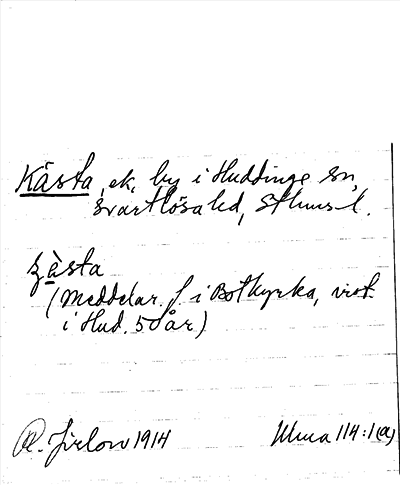 Kästa, ek, by i Huddinge sn,
Svartlösa hd, Sthms l.
ꞩästa
(Meddelar. f. i Botkyrka, vist.
i Hud. 50 år)
R. Jirlow 1914 Ulma 114:1(a)